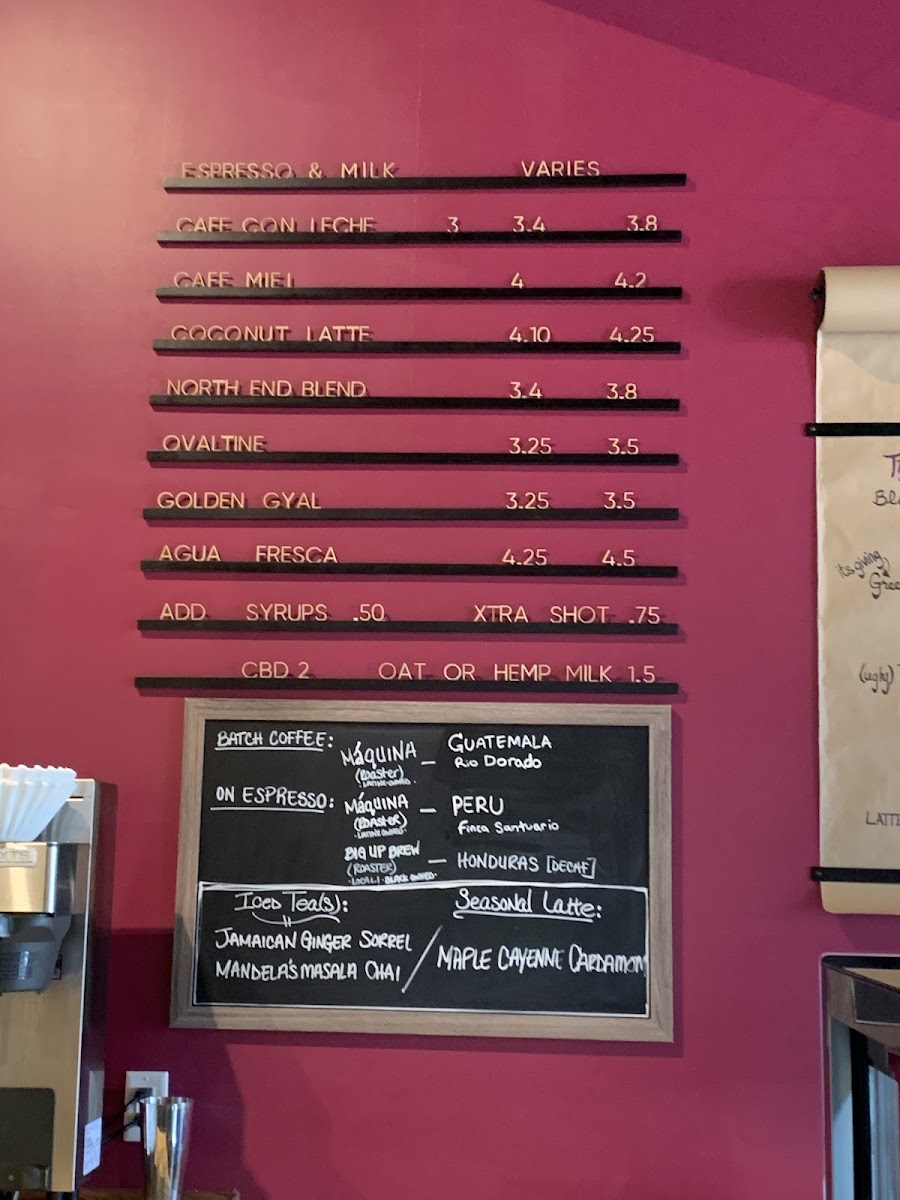 ESPRESSO & MILK VARIES
CAFE CON LECHE 3 3.4 3.8
CAFE MIEL 4 4.2
COCONUT LATTE 4.10 4.25
NORTH END BLEND 3.4 3.8
OVALTINE 3.25 3.5
GOLDEN GYAL 3.25 3.5
AGUA FRESCA 4.25 4.5
ADD SYRUPS .50 XTRA SHOT .75
CBD 2 OAT OR HEMP MILK 1.5
BATCH COFFEE: MÁQUINA – GUATEMALA
(ROASTER) RIO DORADO
·LATINX·OWNED·
ON ESPRESSO: MÁQUINA – PERU
(ROASTER) Finca Santuario
·LATINX OWNED·
BIG UP BREW – HONDURAS [DECAF]
(ROASTER)
·LOCAL· BLACK OWNED·
ICED TEA(S): SEASONAL LATTE:
JAMAICAN GINGER SORREL
MANDELA'S MASALA CHAI / MAPLE CAYENNE CARDAMOM
its giving
(ugly)